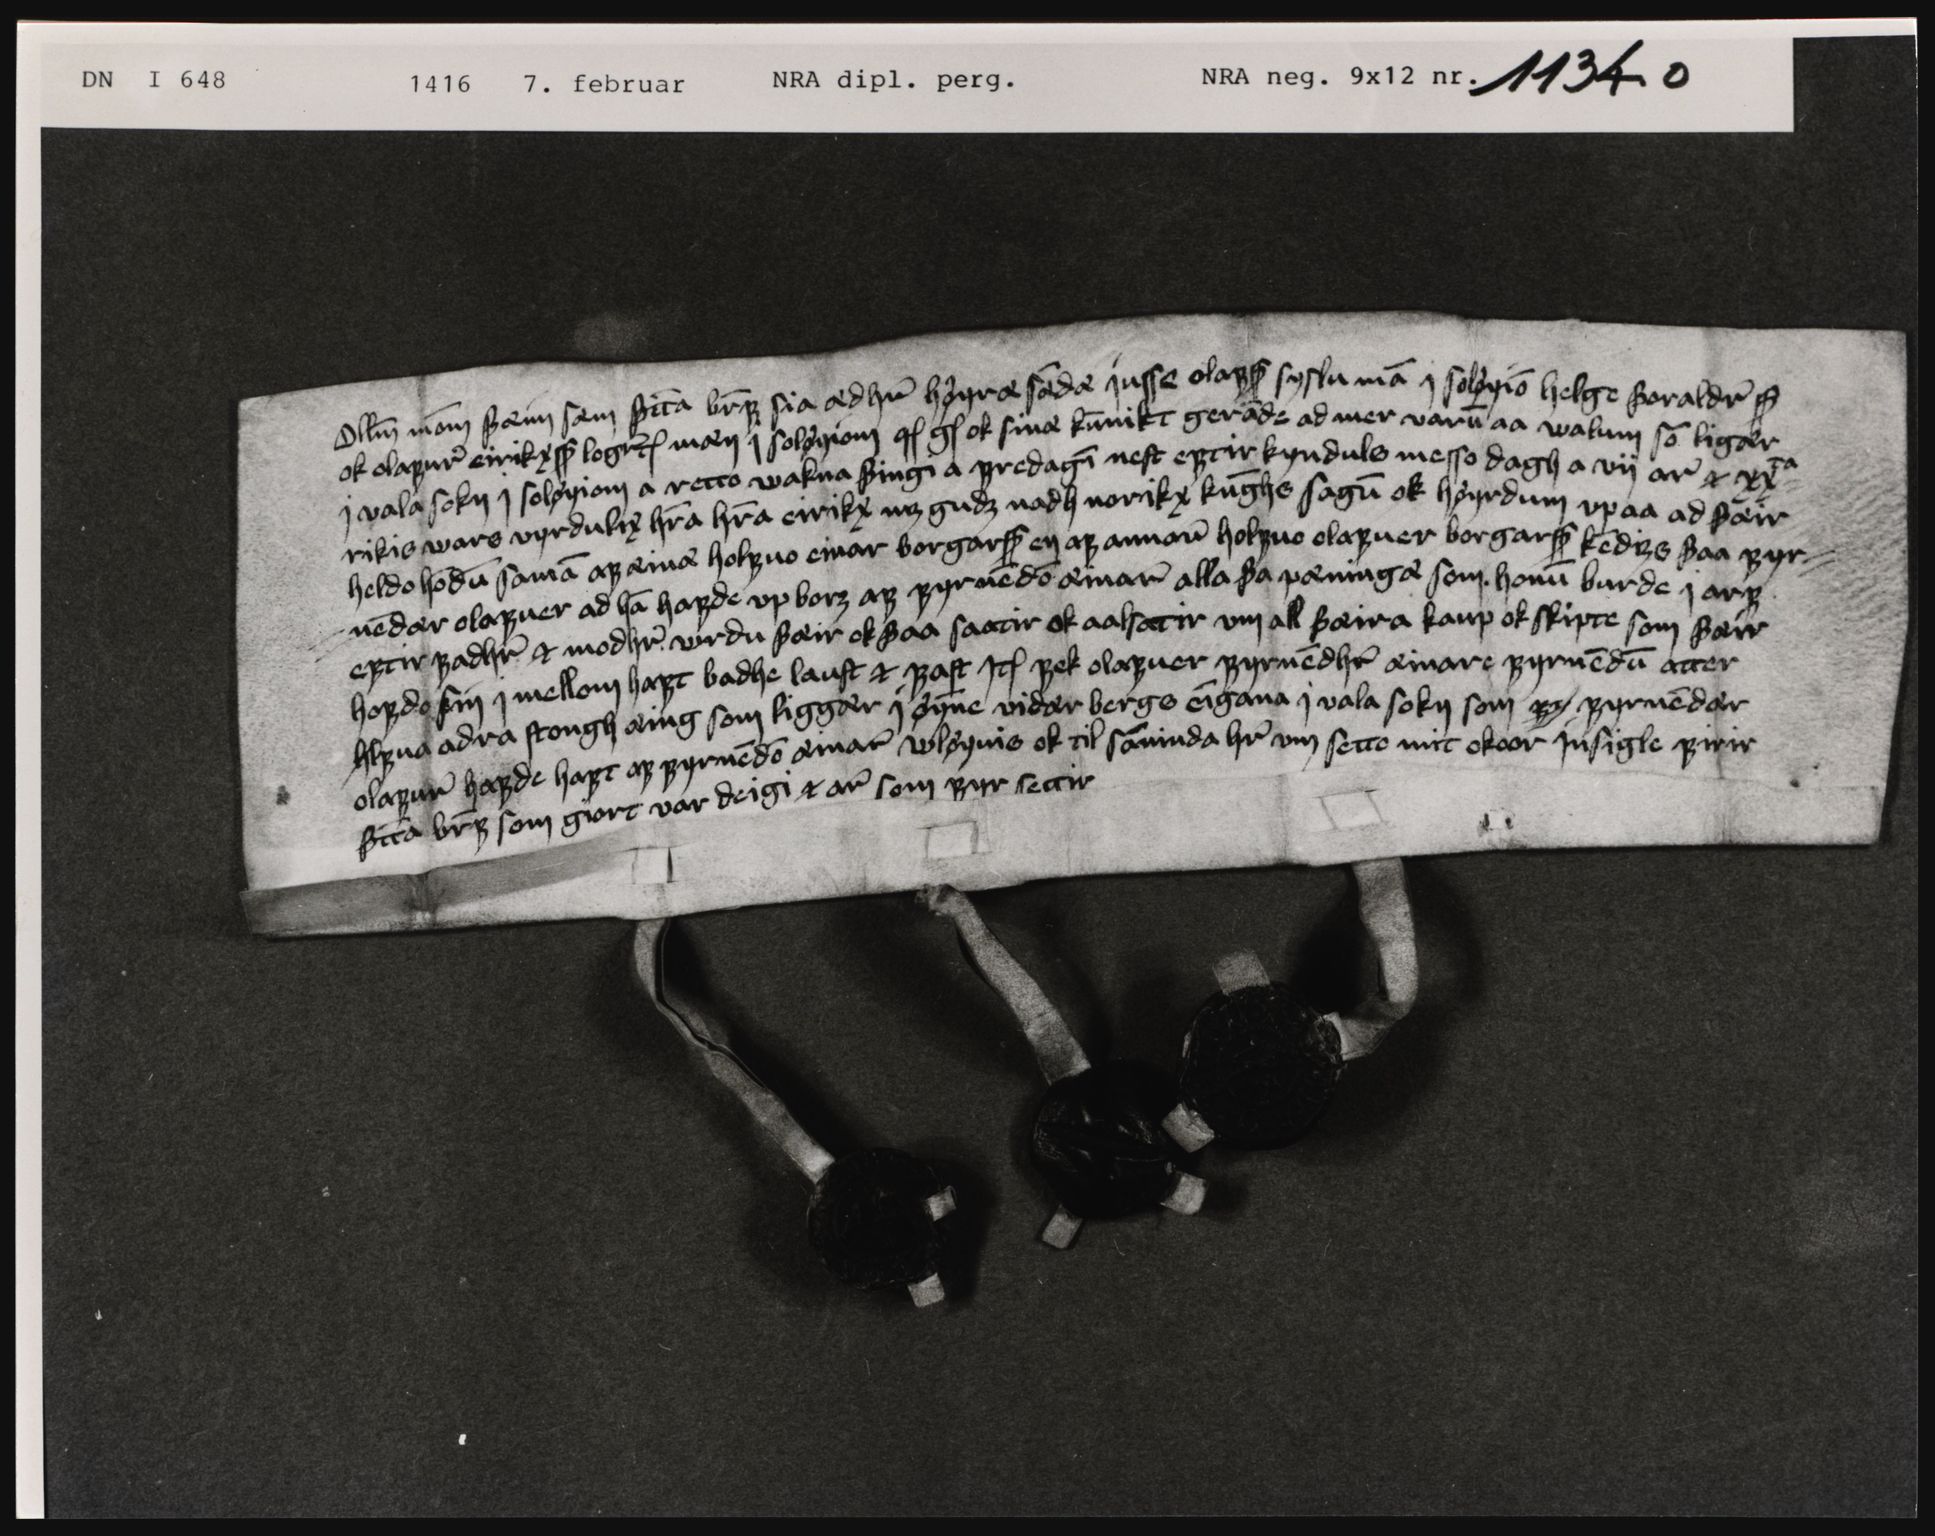 DN I 648 1416 7. februar NRA dipl. perg. NRA neg. 9x12 nr. 11340
Ollū mōm þæim sæm þꝫtta bref sia æd hr̄ høyræ sēdæ jusse olafs s syslu mā j soløyiō helge þoraldr̄ s
ok olafur̄ eirikx s logrt̄ mæn j soløyiom q gs ok sinæ kunnikt gerāde ad mer varū aa walum sō ligær
j vala sokn j soløyiom a retto wakna þingi a fredagī nest eftir kynduls messo dagh a vii ar̄ & xxta
rikis wars vyrdulix hr̄a hr̄a eirikx mꝫ gudz nadh norikx kūnghs sagū ok høyrdum vpaa ad þæir
heldo hōdū samā af æinæ holfuo einar borgars s en af annarū holfuo olafuer borgars s kēdizs þaa fyr
nēdær olafuer ad hā hafde vp borꝫ af fyrnēdō æinar̄ alla þa pæningæ som honū burde j arf
eftir fadhr̄ & modhr̄ vrdu þæir ok þaa saatir ok aalsætir vm all þæira kaup ok skipte som þæir
hofdo sin j mellom haft badhe laust & fast Jt̄ fek olafuer fyrnēdhr̄ æinare fyrnēdū atter
hlfua adra stongh æing som liggær j øyne vidær bergs eīgana j vala sokn som fyrnēdær
olafur̄ hafde haft af fyrnēdō æinar̄ vløyuis ok til sāninda hr̄ vm setto mit okoor jnsigle firir
þꝫtta bref som giort var deigi & ar̄ som fyr sectir